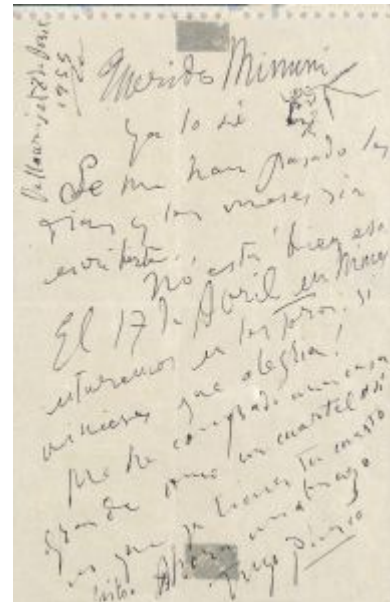 Vallauris el de
1955
Querido Minuni
Ya lo sé
Se me han pasado los
dias y los meses sin
escribirte.
No está bien eso
El 17 de Abril en Nimes
estaremos en los toros, si
vinieses que alegria!
me he comprado una casa
grande como un cuartel asi
es que ya tienes tu cuarto
listo. un abrazo
Picasso